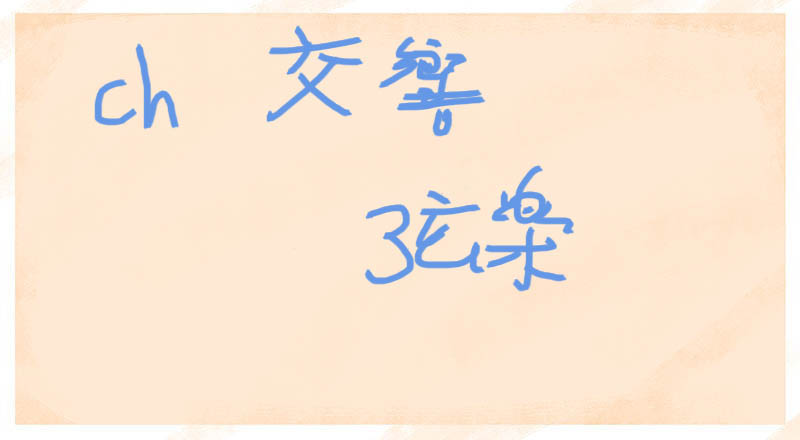 ch 交響
弦楽